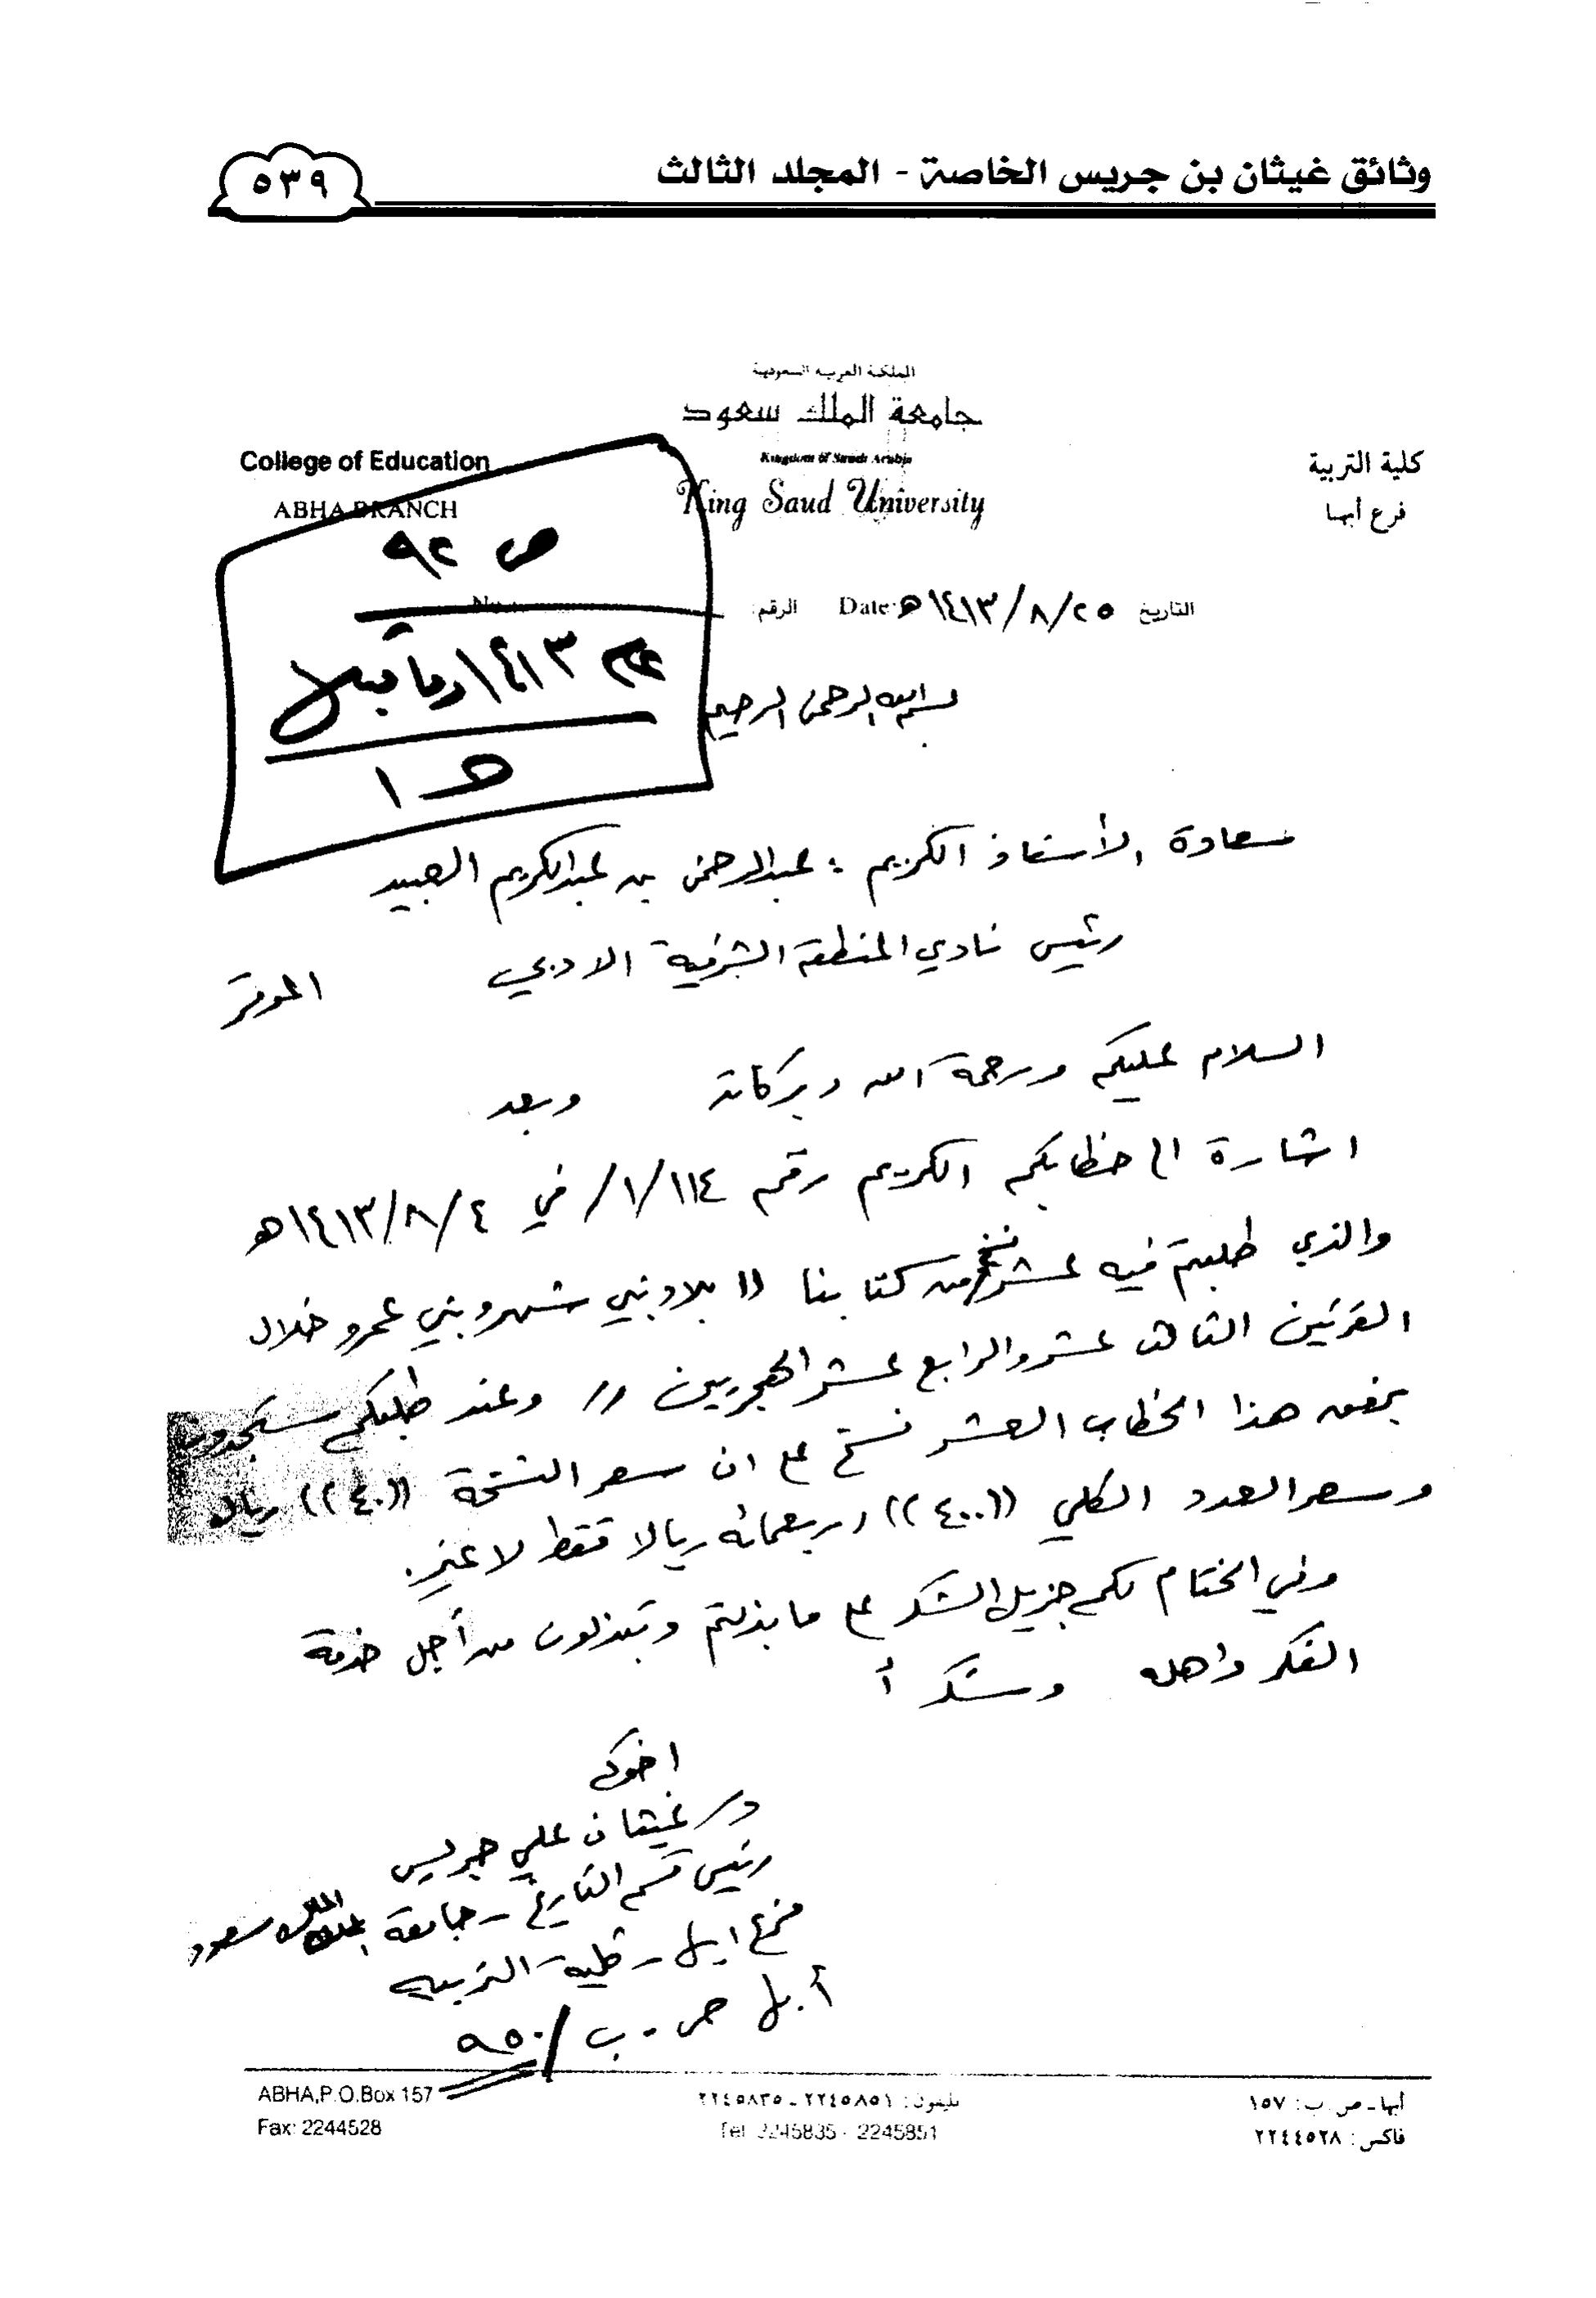 وثائق غيثان بن جريس الخاصة - المجلد الثالث
٥٣٩
المملكة العربية السعودية
جامعة الملك سعود
Kingdom of Saudi Arabia
King Saud University
كلية التربية
فرع أبها
College of Education
ABHA BRANCH
ص ٩٢
١٤١٣ وما قبل
ھ ١
التاريخ ١٤١٣/٨/٢٥ھ Date: الرقم: No.
بسم الله الرحمن الرحيم
سعادة الأستاذ الكريم : عبدالرحمن بن عبدالكريم العبيد
رئيس نادي المنطقة الشرقية الادبي الموقر
السلام عليكم ورحمة الله وبركاته وبعد
اشارة الى خطابكم الكريم رقم ١١٤/١/ في ١٤١٣/٨/٤ھ
والذي طلبتم فيه عشر نسخ من كتابنا (( بلاد بني شهر وبني عمرو خلال
القرنين الثالث عشر والرابع عشر الهجريين )) وعند طلبكم ستجدون
برفقه هذا الخطاب العشر نسخ على ان سعر النسخة ((٤٠)) ريال
وسعر العدد الكلي ((٤٠٠)) اربعمائه ريالا فقط لا غير.
وفي الختام لكم جزيل الشكر على ما بذلتم وتبذلون من أجل خدمة
الفكر واهله وشكرأ
اخوك
د/ غيثان علي جريس
رئيس قسم التاريخ - جامعة الملك سعود
فرع ابها - كلية التربيه
أبها ص . ب / ٩٥٠
أبها - ص . ب : ١٥٧
فاكس : ٢٢٤٤٥٢٨
تليفون : ٢٢٤٥٨٥١ - ٢٢٤٥٨٣٥
Tel 2245835 - 2245851
ABHA,P.O.Box 157
Fax: 2244528